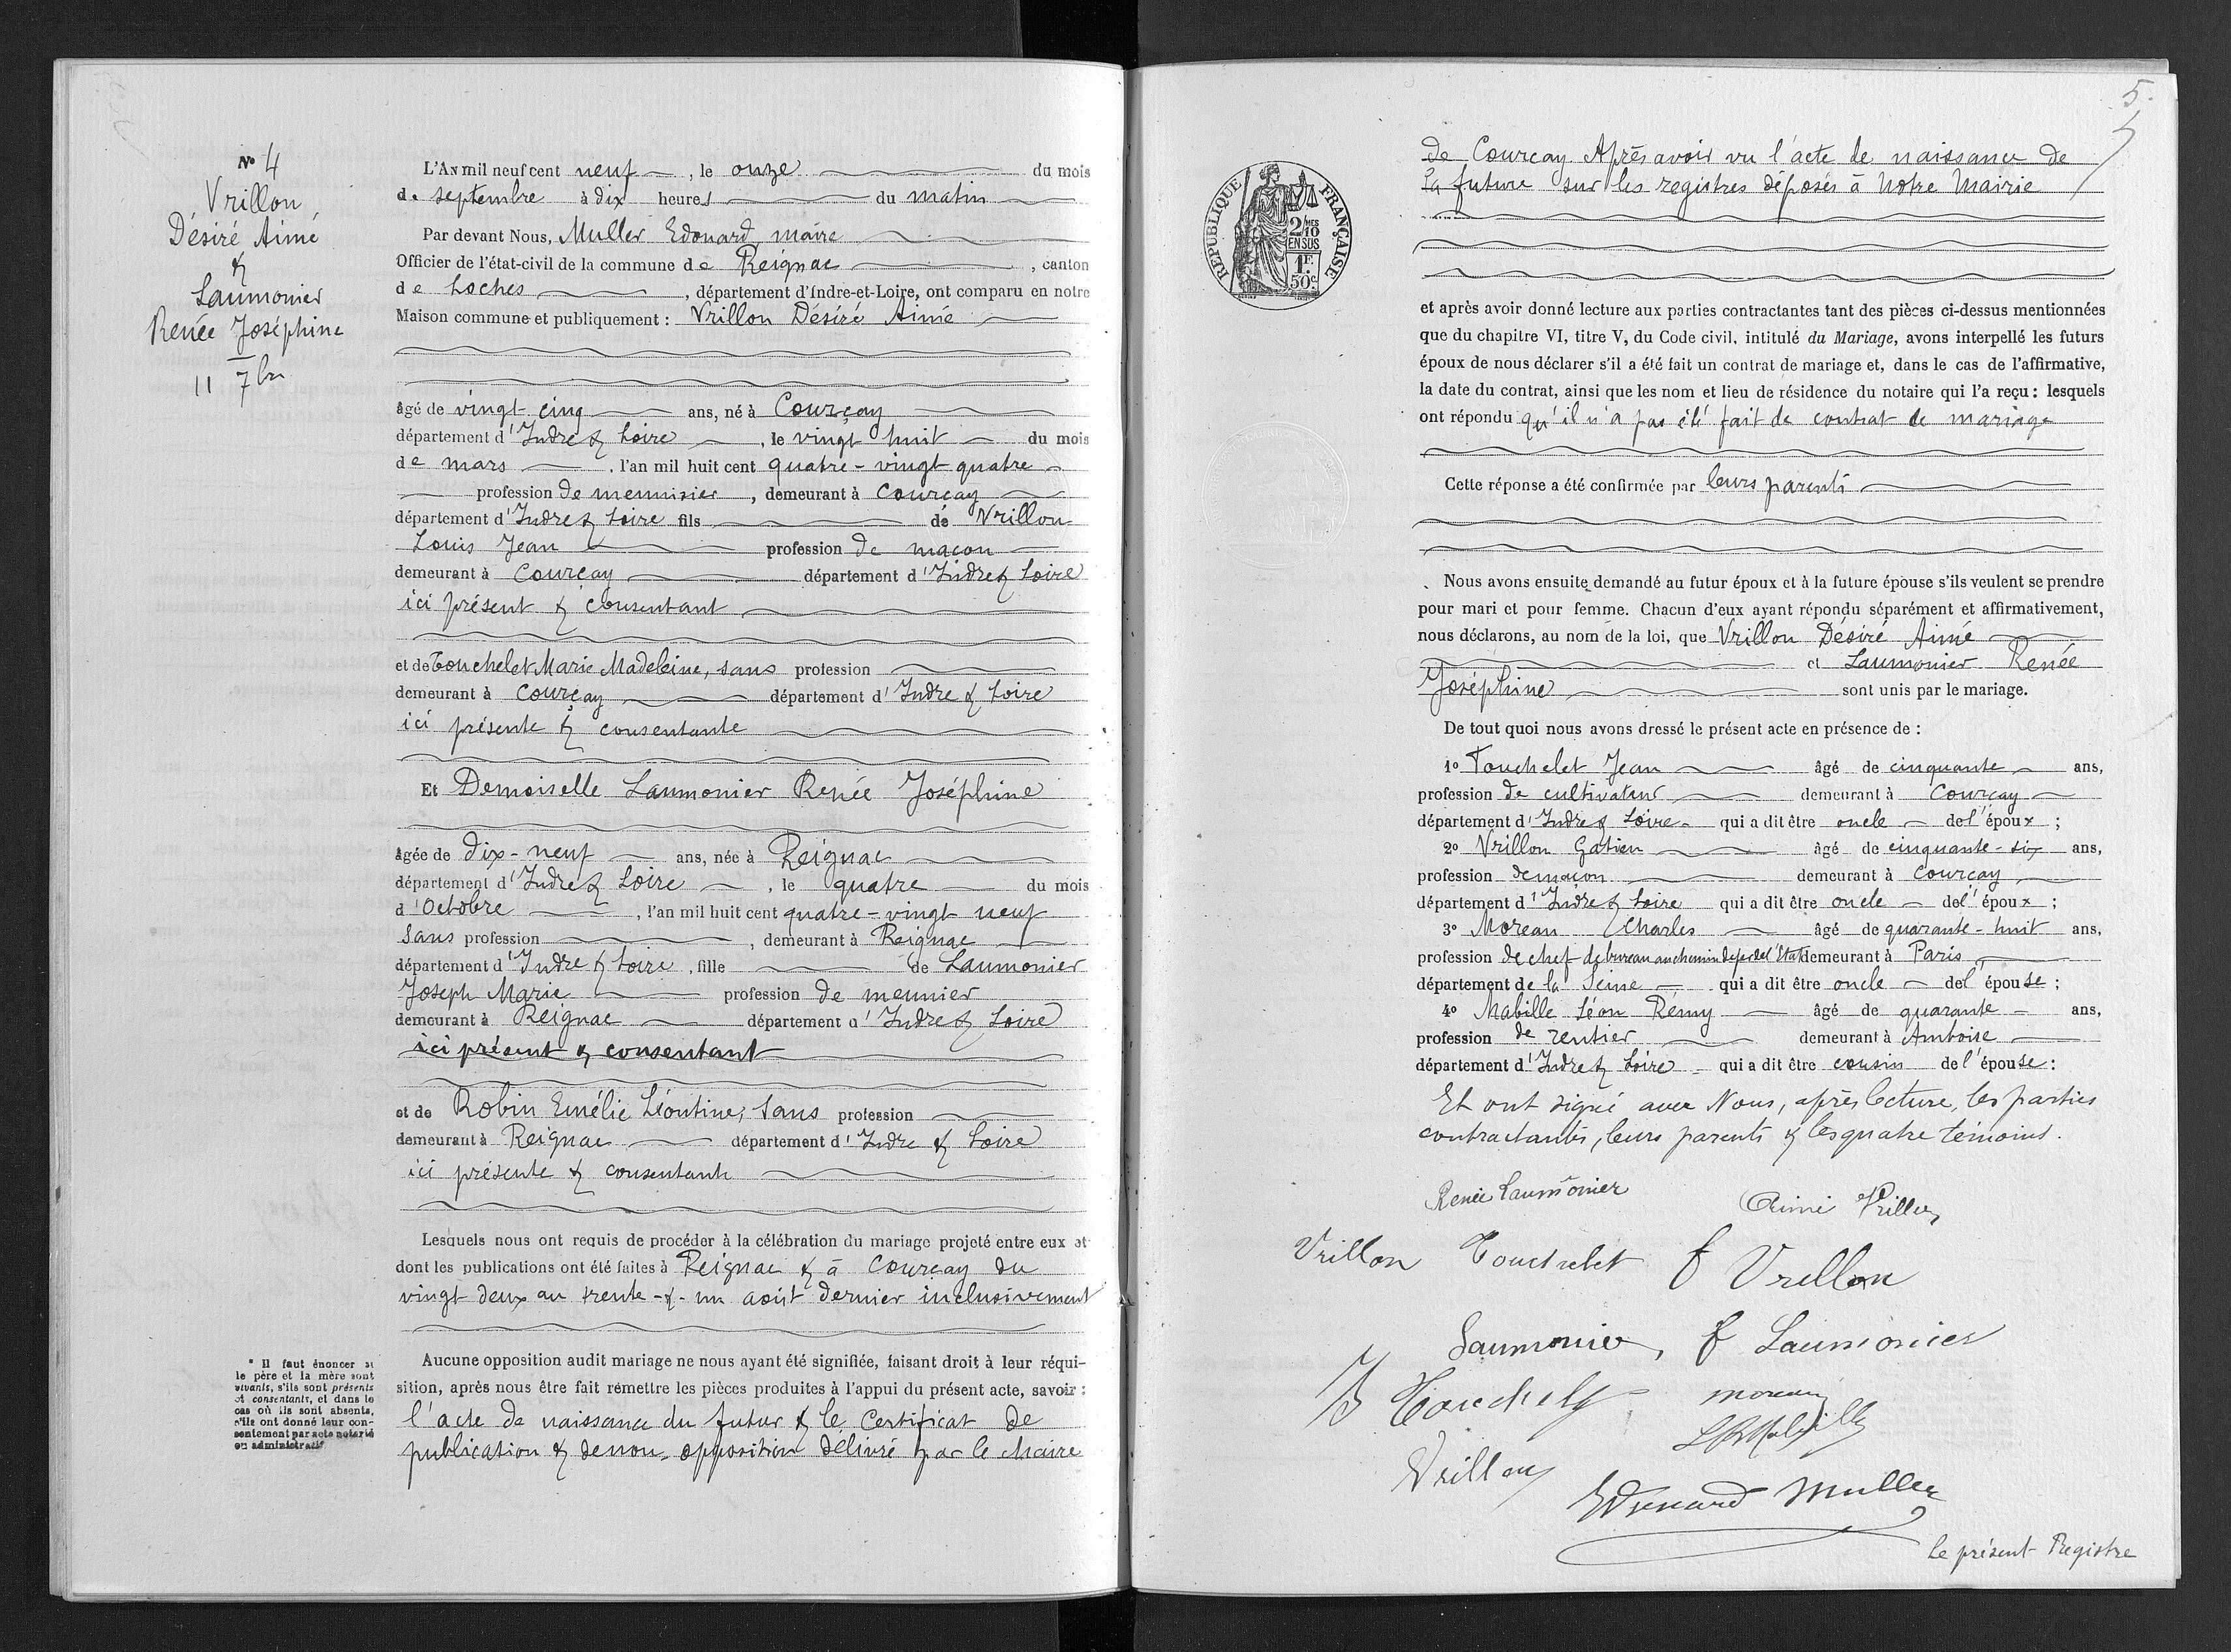 N° 4
Vrillon
Désiré Aimé
&
Laumonier
Renée Joséphine
11 7bre
L'An mil neuf cent neuf, le onze du mois
de septembre à dix heures du matin
Par devant Nous, Muller Edouard maire
Officier de l'état-civil de la commune de Reignac, canton
de Loches, département d'Indre-et-Loire, ont comparu en notre
Maison commune et publiquement : Vrillon Désiré Aimé
âgé de vingt-cinq ans, né à Courçay
département d'Indre & Loire, le vingt huit du mois
de mars, l'an mil huit cent quatre-vingt quatre
profession de menuisier, demeurant à Courçay
département d'Indre & Loire fils de Vrillon
Louis Jean profession de maçon
demeurant à Courçay département d'Indre & Loire
ici présent & consentant
et de Touchelet Marie Madeleine, sans profession
demeurant à Courçay département d'Indre & Loire
ici présente & consentante
Et Demoiselle Laumonier Renée Joséphine
âgée de dix-neuf ans, née à Reignac
département d'Indre & Loire, le quatre du mois
d'Octobre, l'an mil huit cent quatre-vingt neuf
sans profession, demeurant à Reignac
département d'Indre & Loire, fille de Laumonier
Joseph Marie profession de meunier
demeurant à Reignac département d'Indre & Loire
ici présent & consentant
et de Robin Emélie Léontine, sans profession
demeurant à Reignac département d'Indre & Loire
ici présente & consentante
Lesquels nous ont requis de procéder à la célébration du mariage projeté entre eux et
dont les publications ont été faites à Reignac & à Courçay du
vingt deux au trente-&-un août dernier inclusivement
* Il faut énoncer si
le père et la mère sont
vivants, s'ils sont présents
et consentants, et dans le
cas où ils sont absents,
s'ils ont donné leur con-
sentement par acte notarié
ou administratif
Aucune opposition audit mariage ne nous ayant été signifiée, faisant droit à leur réqui-
sition, après nous être fait remettre les pièces produites à l'appui du présent acte, savoir :
l'acte de naissance du futur & le Certificat de
publication & de non-opposition délivré par le Maire
5
RÉPUBLIQUE FRANÇAISE
2/10 EN SUS
1F. 50c
de Courçay. Après avoir vu l'acte de naissance de
la future sur les registres déposés à Notre Mairie
et après avoir donné lecture aux parties contractantes tant des pièces ci-dessus mentionnées
que du chapitre VI, titre V, du Code civil, intitulé du Mariage, avons interpellé les futurs
époux de nous déclarer s'il a été fait un contrat de mariage et, dans le cas de l'affirmative,
la date du contrat, ainsi que les nom et lieu de résidence du notaire qui l'a reçu : lesquels
ont répondu qu'il n'a pas été fait de contrat de mariage
Cette réponse a été confirmée par leurs parents
Nous avons ensuite demandé au futur époux et à la future épouse s'ils veulent se prendre
pour mari et pour femme. Chacun d'eux ayant répondu séparément et affirmativement,
nous déclarons, au nom de la loi, que Vrillon Désiré Aimé
et Laumonier Renée
Joséphine sont unis par le mariage.
De tout quoi nous avons dressé le présent acte en présence de :
1° Touchelet Jean âgé de cinquante ans,
profession de cultivateur demeurant à Courçay
département d'Indre & Loire qui a dit être oncle de l'époux ;
2° Vrillon Gatien âgé de cinquante-six ans,
profession de maçon demeurant à Courçay
département d'Indre & Loire qui a dit être oncle de l'époux ;
3° Moreau Charles âgé de quarante-huit ans,
profession de chef de bureau au chemin de fer de l'Etat demeurant à Paris
département de la Seine qui a dit être oncle de l'épouse ;
4° Mabille Léon Rémy âgé de quarante ans,
profession de rentier demeurant à Amboise
département d'Indre & Loire qui a dit être cousin de l'épouse :
Et ont signé avec Nous, après lecture, les parties
contractantes, leurs parents & les quatre témoins.
Renée Laumonier Aimé Vrillon
Vrillon Touchelet f Vrillon
Laumonier, f Laumonier
Touchelet Moreau
LR Mabille
Vrillon
Edouard Muller
Le présent Registre